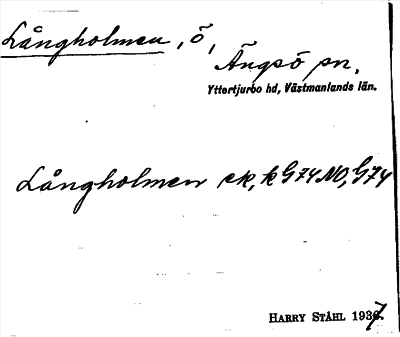 Långholmen, ö,
Ängsö sn,
Yttertjurbo hd, Västmanlands län.
Långholmen ek, k G74NO, G74
HARRY STÅHL 1937